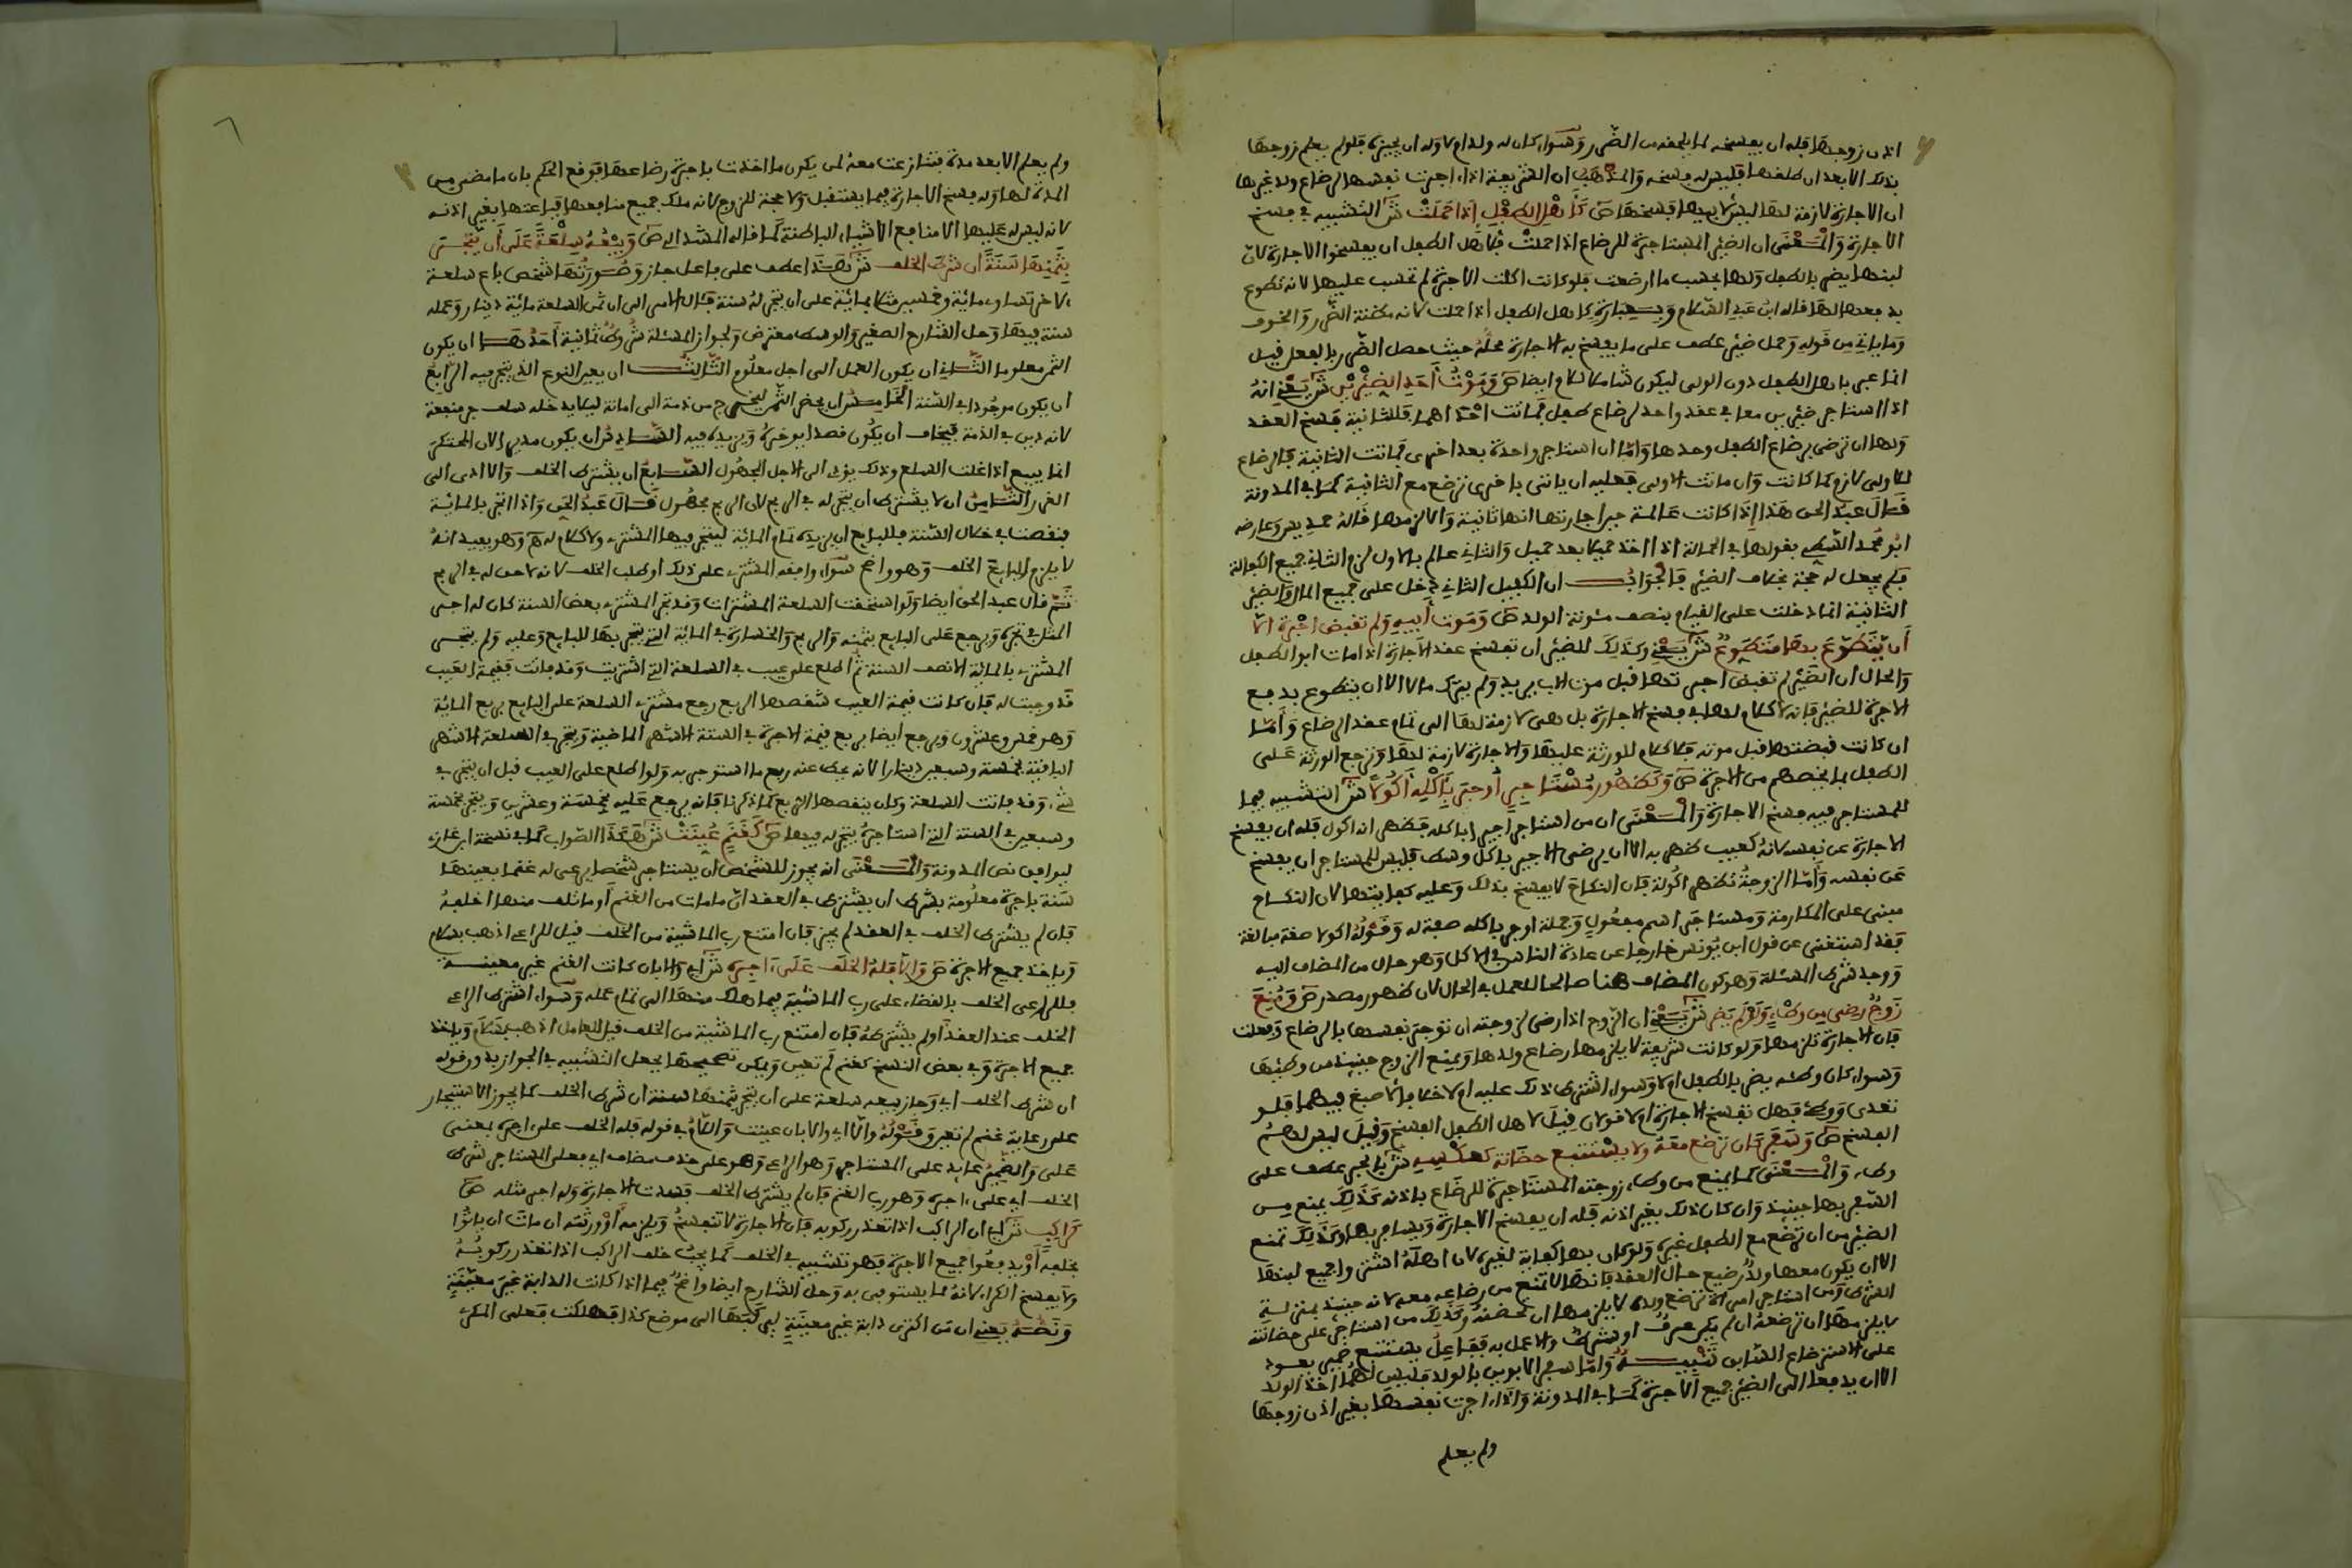 اذن زوجها فله ان يفسخه لما يلحقه من الضرر وسواء كان له ولد ام لا وله ان يجيزه فلو لم يعلم زوجها
بذلك الا بعد ان طلقها فليس له فسخه والمذهب ان الشريفة اذا اجرت نفسها لرضاع ولد غيرها
ان الاجارة لازمة لها ليس لاحد فسخها ص كاهل الطفل اذا حملت ش التشبيه في فسخ
الاجارة والمعنى ان الظئر المستاجرة للرضاع اذا حملت فلاهل الطفل ان يفسخوا الاجارة لان
لبنها يضر بالطفل ولها بحسب ما ارضعت فلو كانت اكلت الاجرة لم تحسب عليها لانه تطوع
بدفعها لها قاله ابن عبد السلام وبعبارة كاهل الطفل اذا حملت لانه مظنة الضرر والخوف
وما ياتي من قوله وحمل ظئر عطف على ما يفسخ به الاجارة محله حيث حصل الضرر بالفعل قيل
انما عبر باهل الطفل دون الولي ليكون شاملا للام ايضا ص وموت احد الظئرين ش يعني انه
اذا استاجر ظئرين معا في عقد واحد لرضاع طفل فماتت احداهما فللثانية فسخ العقد
ولها ان ترضى برضاع الطفل وحدها واما ان استاجر واحدة بعد اخرى فماتت الثانية فالرضاع
للاولى لازم كما كانت وان ماتت الاولى فعليه ان ياتي باخرى ترضع مع الثانية كما في المدونة
قال عبد الحق هذا اذا كانت عالمة حين اجارتها انها ثانية والا لزمها قاله حمديس وعارضه
ابو محمد الشبيبي بقولها في الحمالة اذا اخذ حميلا بعد حميل والثاني عالم بالاول لزم الثاني جميع الكفالة
فلم يجعل له حجة بخلاف الظئر فالجواب ان الكفيل الثاني دخل على جميع المال والظئر
الثانية انما دخلت على القيام بنصف مئونة الولد ص وموت ابيه ولم تقبض اجرة الا
ان يتطوع بها متطوع ش يعني وكذلك للظئر ان تفسخ عقد الاجارة اذا مات ابو الطفل
والحال ان الظئر لم تقبض اجرتها قبل موت الاب يريد ولم يترك مالا الا ان يتطوع بدفع
الاجرة للظئر فانه لا كلام لها في فسخ الاجارة بل هي لازمة لها الى تمام عقد الرضاع واما
ان كانت قبضتها قبل موته فلا كلام للورثة عليها والاجارة لازمة لها وترجع الورثة على
الطفل بما يخصهم من الاجرة ص وكظهور مستاجر اوجر باكله اكولا ش التشبيه فيما
للمستاجر فيه فسخ الاجارة والمعنى ان من استاجر اجيرا باكله فظهر انه اكول فله ان يفسخ
الاجارة عن نفسه لانه كعيب ظهر به الا ان يرضى الاجير باكل وسط فليس للمستاجر ان يفسخ
عن نفسه واما الزوجة تظهر اكولة فان النكاح لا يفسخ بذلك وعليه كفايتها لان النكاح
مبني على المكارمة ومستاجر اسم مفعول وجملة اوجر باكله صفة له وقوله اكولا صفة مبالغة
فقد استغنى عن قول ابن يونس خارجا عن عادة الناس في الاكل وهو حال من المضاف اليه
ووجد شرط المسئلة وهو كون المضاف هنا صالحا للعمل في الحال لان ظهور مصدر ص ومنع
زوج رضي من وطء ولو لم يضر ش يعني ان الزوج اذا رضي لزوجته ان توجر نفسها بالرضاع وفعلت
فان الاجارة تلزمها ولو كانت شريفة لا يلزمها رضاع ولدها ويمنع الزوج حينئذ من وطئها
وسواء كان وطئه يضر بالطفل ام لا وسواء اشترط ذلك عليه ام لا خلافا لاصبغ فيهما فلو
تعدى ووطئ فهل تفسخ الاجارة ام لا قولان قيل لاهل الطفل الفسخ وقيل ليس لهم
الفسخ ص وسفر وان ترضع معه ولا يستتبع حضانة كعكسه ش بالجر عطف على
وطء والمعنى كما يمنع من وطء زوجته المستاجرة للرضاع باذنه كذلك يمنع من
السفر بها حينئذ وان كان ذلك بغير اذنه فله ان يفسخ الاجارة ويسافر بها وكذلك تمنع
الظئر من ان ترضع مع الطفل غيره ولو كان بها كفاية لغيره لان اهله اشتروا جميع لبنها
الا ان يكون معها ولد رضيع حال العقد فانها لا تمنع من رضاعه معه لانه حينئذ بمنزلة
الشرط ومن استاجر امراة ترضع ولده لا يلزمها ان تحضنه وكذلك من استاجر على حضانته
لا يلزمها ان ترضعه ان لم يكن عرف او شرط والا عمل به ففاعل يستتبع ضمير يعود
على الاسترضاع السابق تنبيه واما سفر الابوين بالولد فليس لهما اخذ الولد
الا ان يدفعا الى الظئر جميع الاجرة كما في المدونة واذا اجرت نفسها بغير اذن زوجها
ولم يعلم
ولم يعلم الا بعد مدة فتنازعت معه لمن يكون ما اخذت باجرة رضاعها فوقع الحكم بان ما مضى من
المدة لها وله فسخ الاجارة فيما يستقبل ولا حجة للزوج لانه ملك جميع منافعها فباعتها بغير اذنه
لانه ليس له عليها الا منافع الاشياء الباطنة كما قاله المشذالي ص وبيعه سلعة على ان يتجر
بثمنها سنة ان شرط الخلف ش هذا عطف على فاعل جاز وصورتها شخص باع سلعة
لاخر تساوي مائة وخمسين مثلا بمائة على ان يتجر له سنة فئال الامر الى ان ثمن السلعة مائة دينار وعمله
سنة فيها وحل الشارح الصغير والوسط معترض ولجواز المسئلة شروط ثمانية احدها ان يكون
الثمن معلوما الثاني ان يكون العمل الى اجل معلوم الثالث ان يعين النوع الذي يتجر فيه الرابع
ان يكون موجودا في السنة الخامس ان يحضر الثمن ليخرج من ذمة الى امانة ليلا يدخله سلف جر منفعة
لانه دين في الذمة فيخاف ان يكون قصد ان يؤخره ويزيده فيه السادس ان يكون مديرا لان المحتكر
انما يبيع اذا غلت السلع وذلك يؤدي الى الاجل المجهول السابع ان يشترط الخلف والا ادى الى
الغرر الثامن ان لا يشترط ان يتجر له في الربح لان الربح مجهول قال عبد الحق واذا اتجر بالمائة
فنقصت في خلال السنة فللبايع ان يزيده تمام المائة ليتجر فيها المشتري ولا كلام له وهو يفيد انه
لا يلزم البايع الخلف وهو واضح سواء وافقه المشتري على ذلك او طلب الخلف لانه لا حق له في الربح
ثم قال عبد الحق ايضا ولو استحقت السلعة المشتراة وقد تجر المشتري بعض السنة كان له اجر
المثل في تجره ويرجع على البايع بثمنه والربح والخسارة في المائة التي يتجر بها للبايع وعليه ولم يتجر
المشتري بالمائة الا نصف السنة ثم اطلع على عيب في السلعة التي اشتريت وقد فاتت فقيمة العيب
قد وجبت له فان كانت قيمة العيب تنقصها الربع رجع مشتري السلعة على البايع بربع المائة
وهو خمس وعشرون ويرجع ايضا بربع قيمة الاجرة في الستة الاشهر الماضية ويتجر في الستة الاشهر
الباقية بخمسة وسبعين دينارا لانه يحط عنه ربع ما استوجر به ولو اطلع على العيب قبل ان يتجر في
شيء وقد فاتت السلعة وكان ينقصها الربع كما ذكرنا فانه يرجع عليه بخمسة وعشرين ويتجر بخمسة
وسبعين في السنة التي استاجره يتجر له فيها ص كغنم عينت ش هكذا الصواب كما في نسخة ابن غازي
ليوافق نص المدونة والمعنى انه يجوز للشخص ان يستاجر شخصا يرعى له غنما بعينها
سنة باجرة معلومة بشرط ان يشترط في العقد ان ما مات من الغنم او ما تلف منها اخلفه
فان لم يشترط الخلف في العقد لم يجز فان امتنع رب الماشية من الخلف قيل للراعي اذهب بسلام
وياخذ جميع الاجرة ص والا فله الخلف على اجره ش اي والا بان كانت الغنم غير معينة
فللراعي الخلف بالقضاء على رب الماشية فيما هلك منها الى تمام عمله وسواء اشترط الراعي
الخلف عند العقد او لم يشترطه فان امتنع رب الماشية من الخلف قيل للعامل اذهب بسلام وياخذ
جميع الاجرة وفي بعض النسخ كغنم لم تعين ويمكن تصحيحها بجعل التشبيه في الجواز بدون قوله
ان شرط الخلف اي وجاز بيعه سلعة على ان يتجر بثمنها سنة ان شرط الخلف كما يجوز الاستيجار
على رعاية غنم لم تعين وقوله والا اي والا بان عينت واللام في قوله فله الخلف على اجره بمعنى
على والضمير عايد على المستاجر وهو الراعي وهو على حذف مضاف اي فعلى المستاجر شرط
الخلف اي على اجره وهو رب الغنم فان لم يشترط الخلف فسدت الاجارة وله اجر مثله ص
كراكب ش اي ان الراكب اذا تعذر ركوبه فان الاجارة لا تنفسخ ويلزمه او ورثته ان مات ان ياتوا
بخلفه او يدفعوا جميع الاجرة فهو تشبيه في الخلف كما يجب خلف الراكب اذا تعذر ركوبه
ولا يفسخ الكراء لانه مما يستوفى به وحل الشارح ايضا واضح فيما اذا كانت الدابة غير معينة
ونصه يعني ان من اكترى دابة غير معينة ليركبها الى موضع كذا فهلكت فعلى المكري